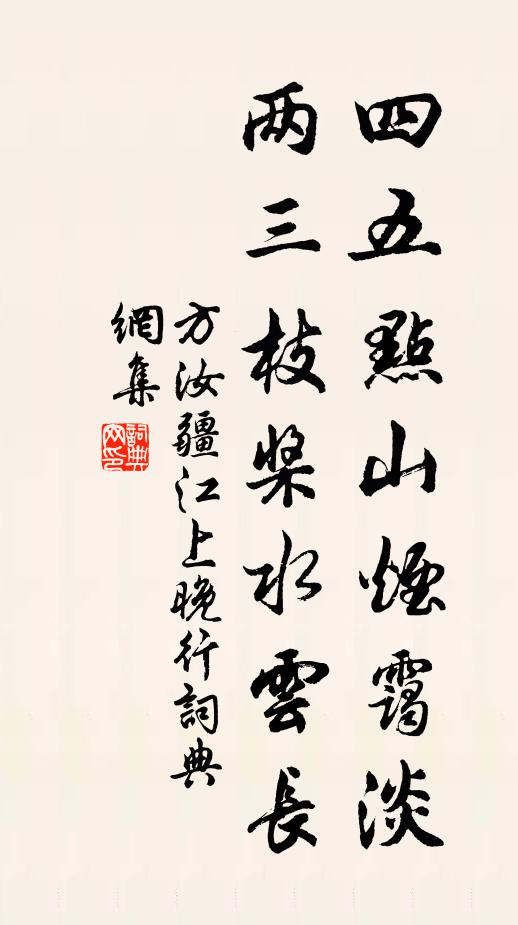 四五點山煙靄淡
两三枝槳水雲長
方汝疆江上晚行詞典
網集
詞典网印